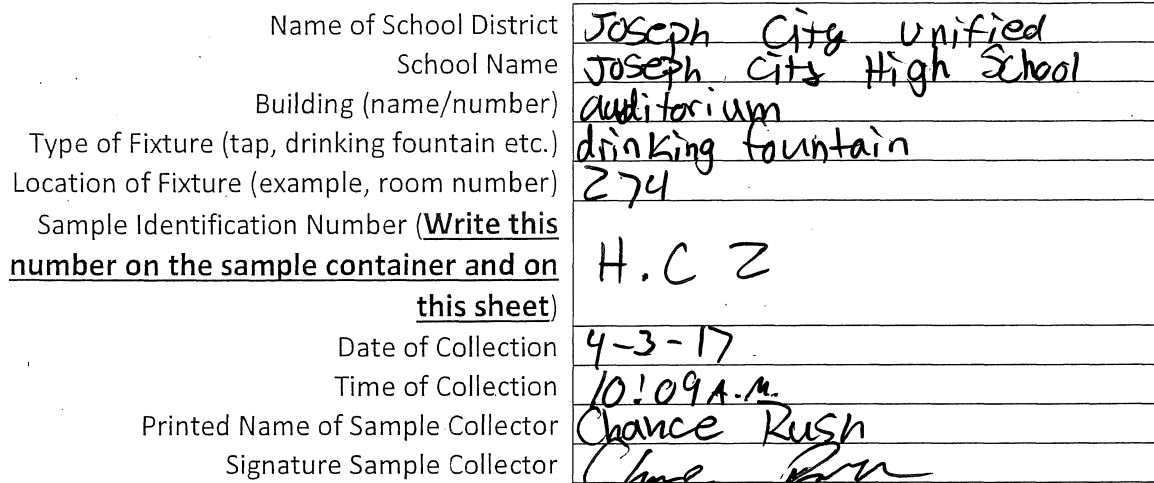 Name of School District Joseph City Unified
School Name Joseph City High School
Building (name/number) auditorium
Type of Fixture (tap, drinking fountain etc.) drinking fountain
Location of Fixture (example, room number) 274
Sample Identification Number (Write this
number on the sample container and on
this sheet) H.C 2
Date of Collection 4-3-17
Time of Collection 10:09 A.M.
Printed Name of Sample Collector Chance Rush
Signature Sample Collector